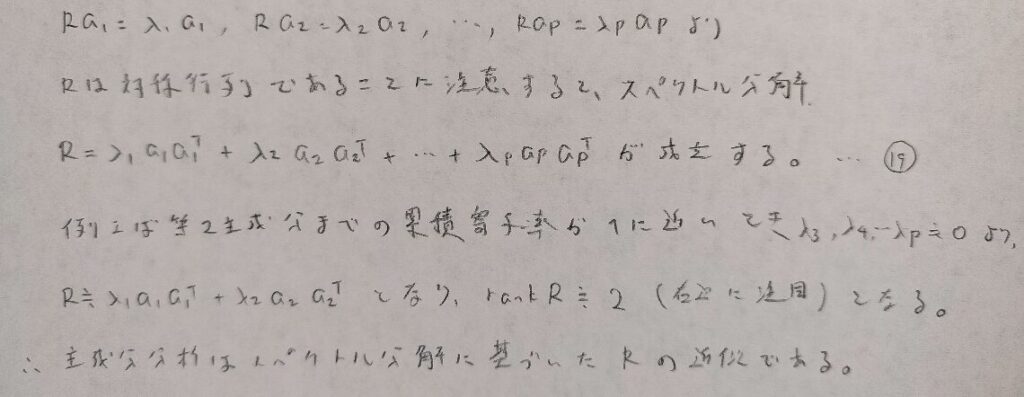 Ra₁ = λ₁a₁, Ra₂ = λ₂a₂, …, Rap = λpap より
Rは対称行列であることに注意すると、スペクトル分解
R = λ₁a₁a₁ᵀ + λ₂a₂a₂ᵀ + … + λpapapᵀ が成立する。 … ⑲
例えば第2主成分までの累積寄与率が1に近いときλ₃, λ₄, …λp≒0 より,
R≒λ₁a₁a₁ᵀ + λ₂a₂a₂ᵀ となり, rankR≒2 (右辺に注目) となる。
∴ 主成分分析はスペクトル分解に基づいたRの近似である。